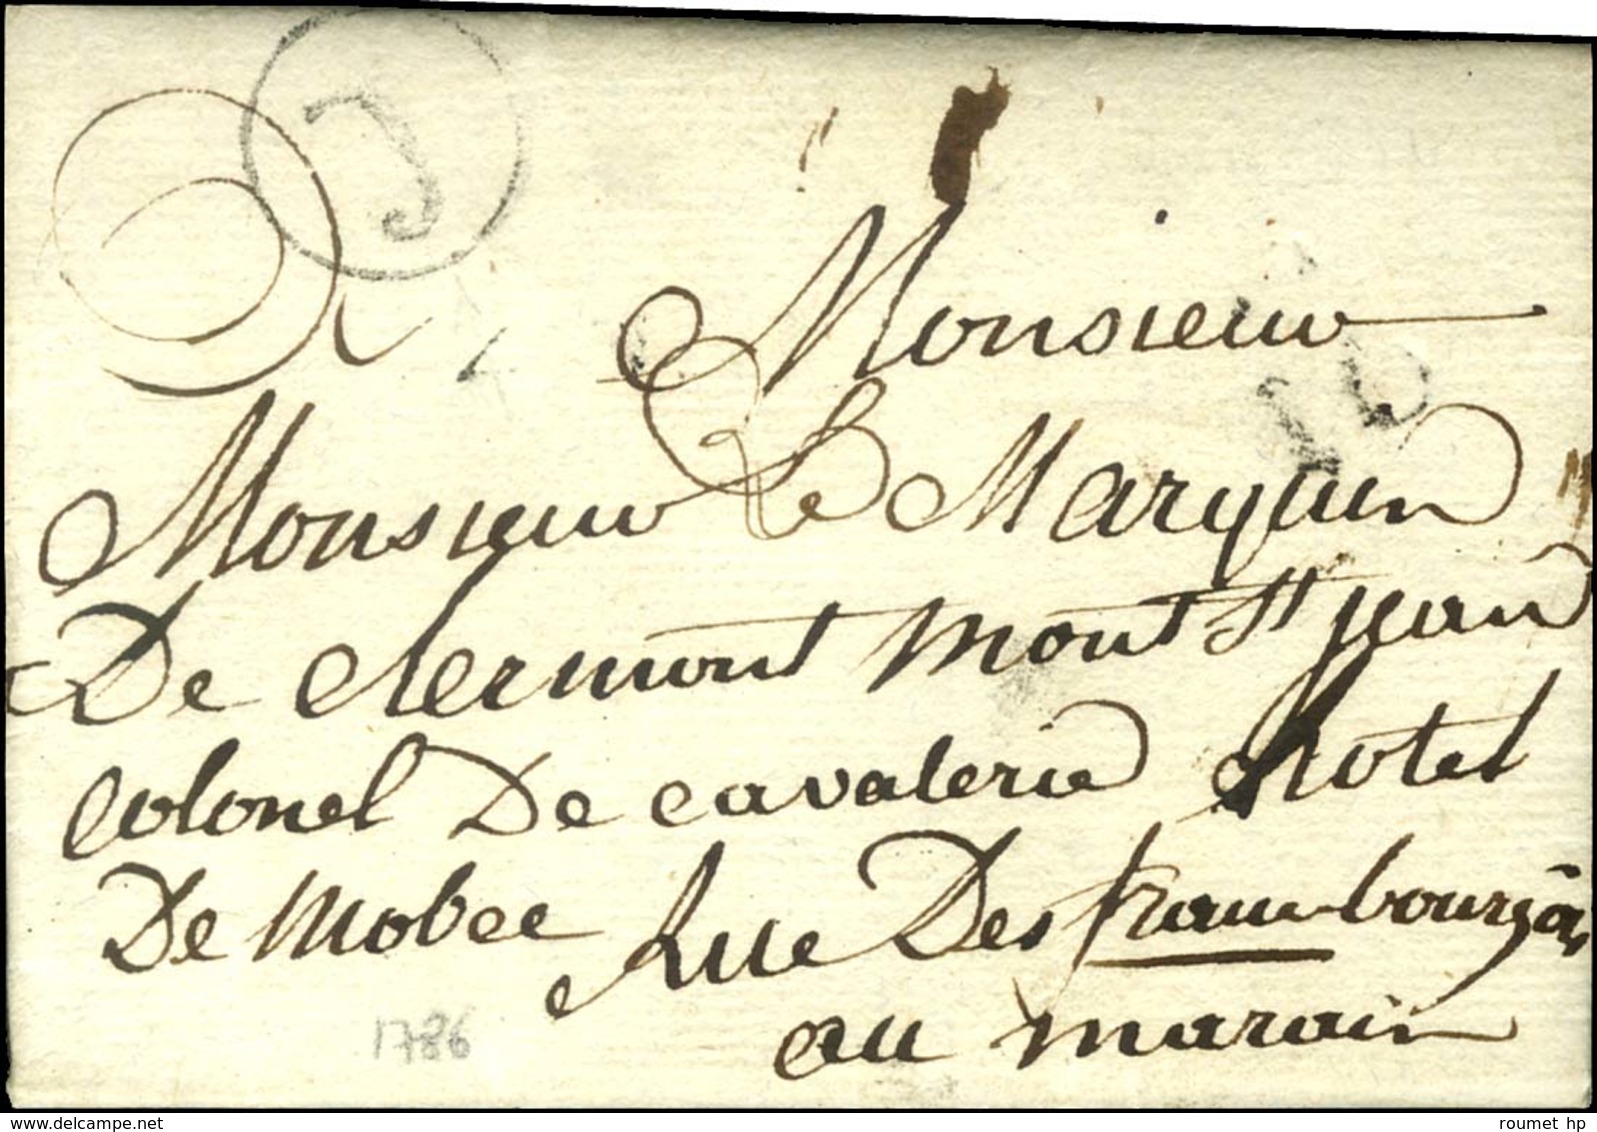 J
Monsieur
1D
Monsieur Le Marquis
De clermont mont St jean
colonel De cavalerie hotel
De Mobec Rue Des franc-bourgois
au marais
1786
roumet hp
www.delcampe.net